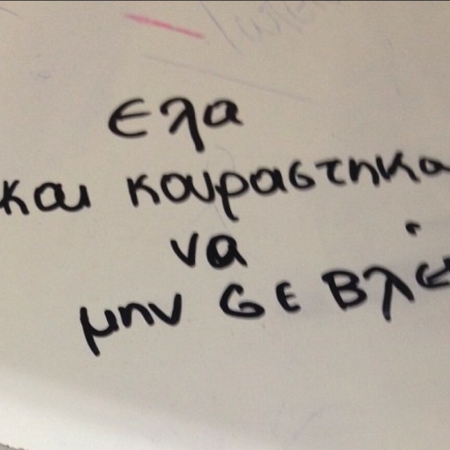 ελα
και κουραστηκα
να
μην σε βλέ